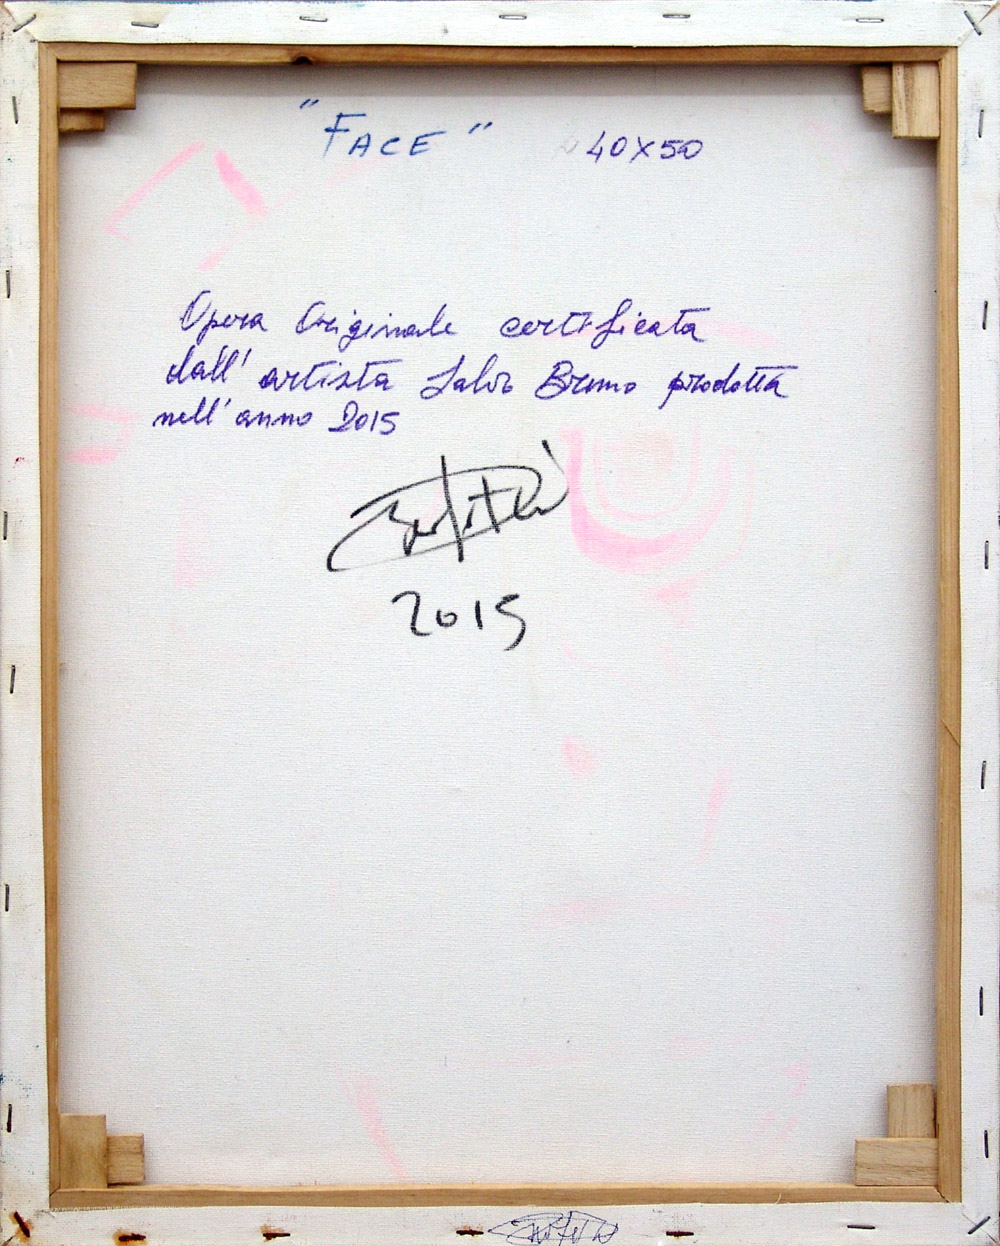 "FACE" 40X50
Opera Originale certificata
dall'artista Salvo Bruno prodotta
nell'anno 2015
2015